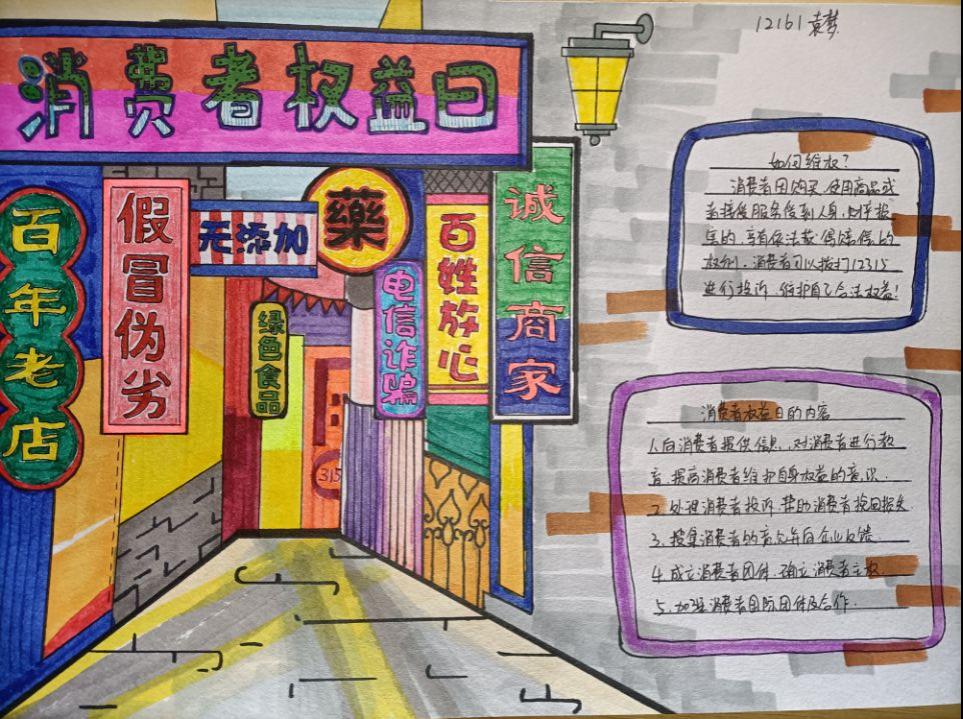 12161 袁梦
消费者权益日
百年老店
假冒伪劣
无添加
藥
绿色食品
315
电信诈骗
百姓放心
诚信商家
如何维权?
消费者因购买、使用商品或
者接受服务受到人身、财产损
害的,享有依法获得赔偿的
权利,消费者可以拨打12315
进行投诉,维护自己合法权益!
消费者权益日的内容
1.向消费者提供信息,对消费者进行教
育,提高消费者维护自身权益的意识.
2.处理消费者投诉,帮助消费者挽回损失.
3.搜集消费者的意见并向企业反馈
4.成立消费者团体,确立消费者主权.
5.加强消费者国际团体及合作.